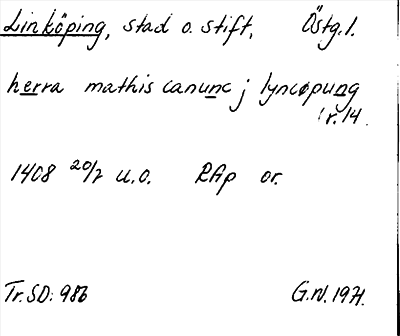 Linköping, stad o. stift, Östg.l.
herra mathis canunc j lyncøpung
r. 14.
1408 20/2 u.o. RAp or.
Tr. SD: 986 G.W. 1971.